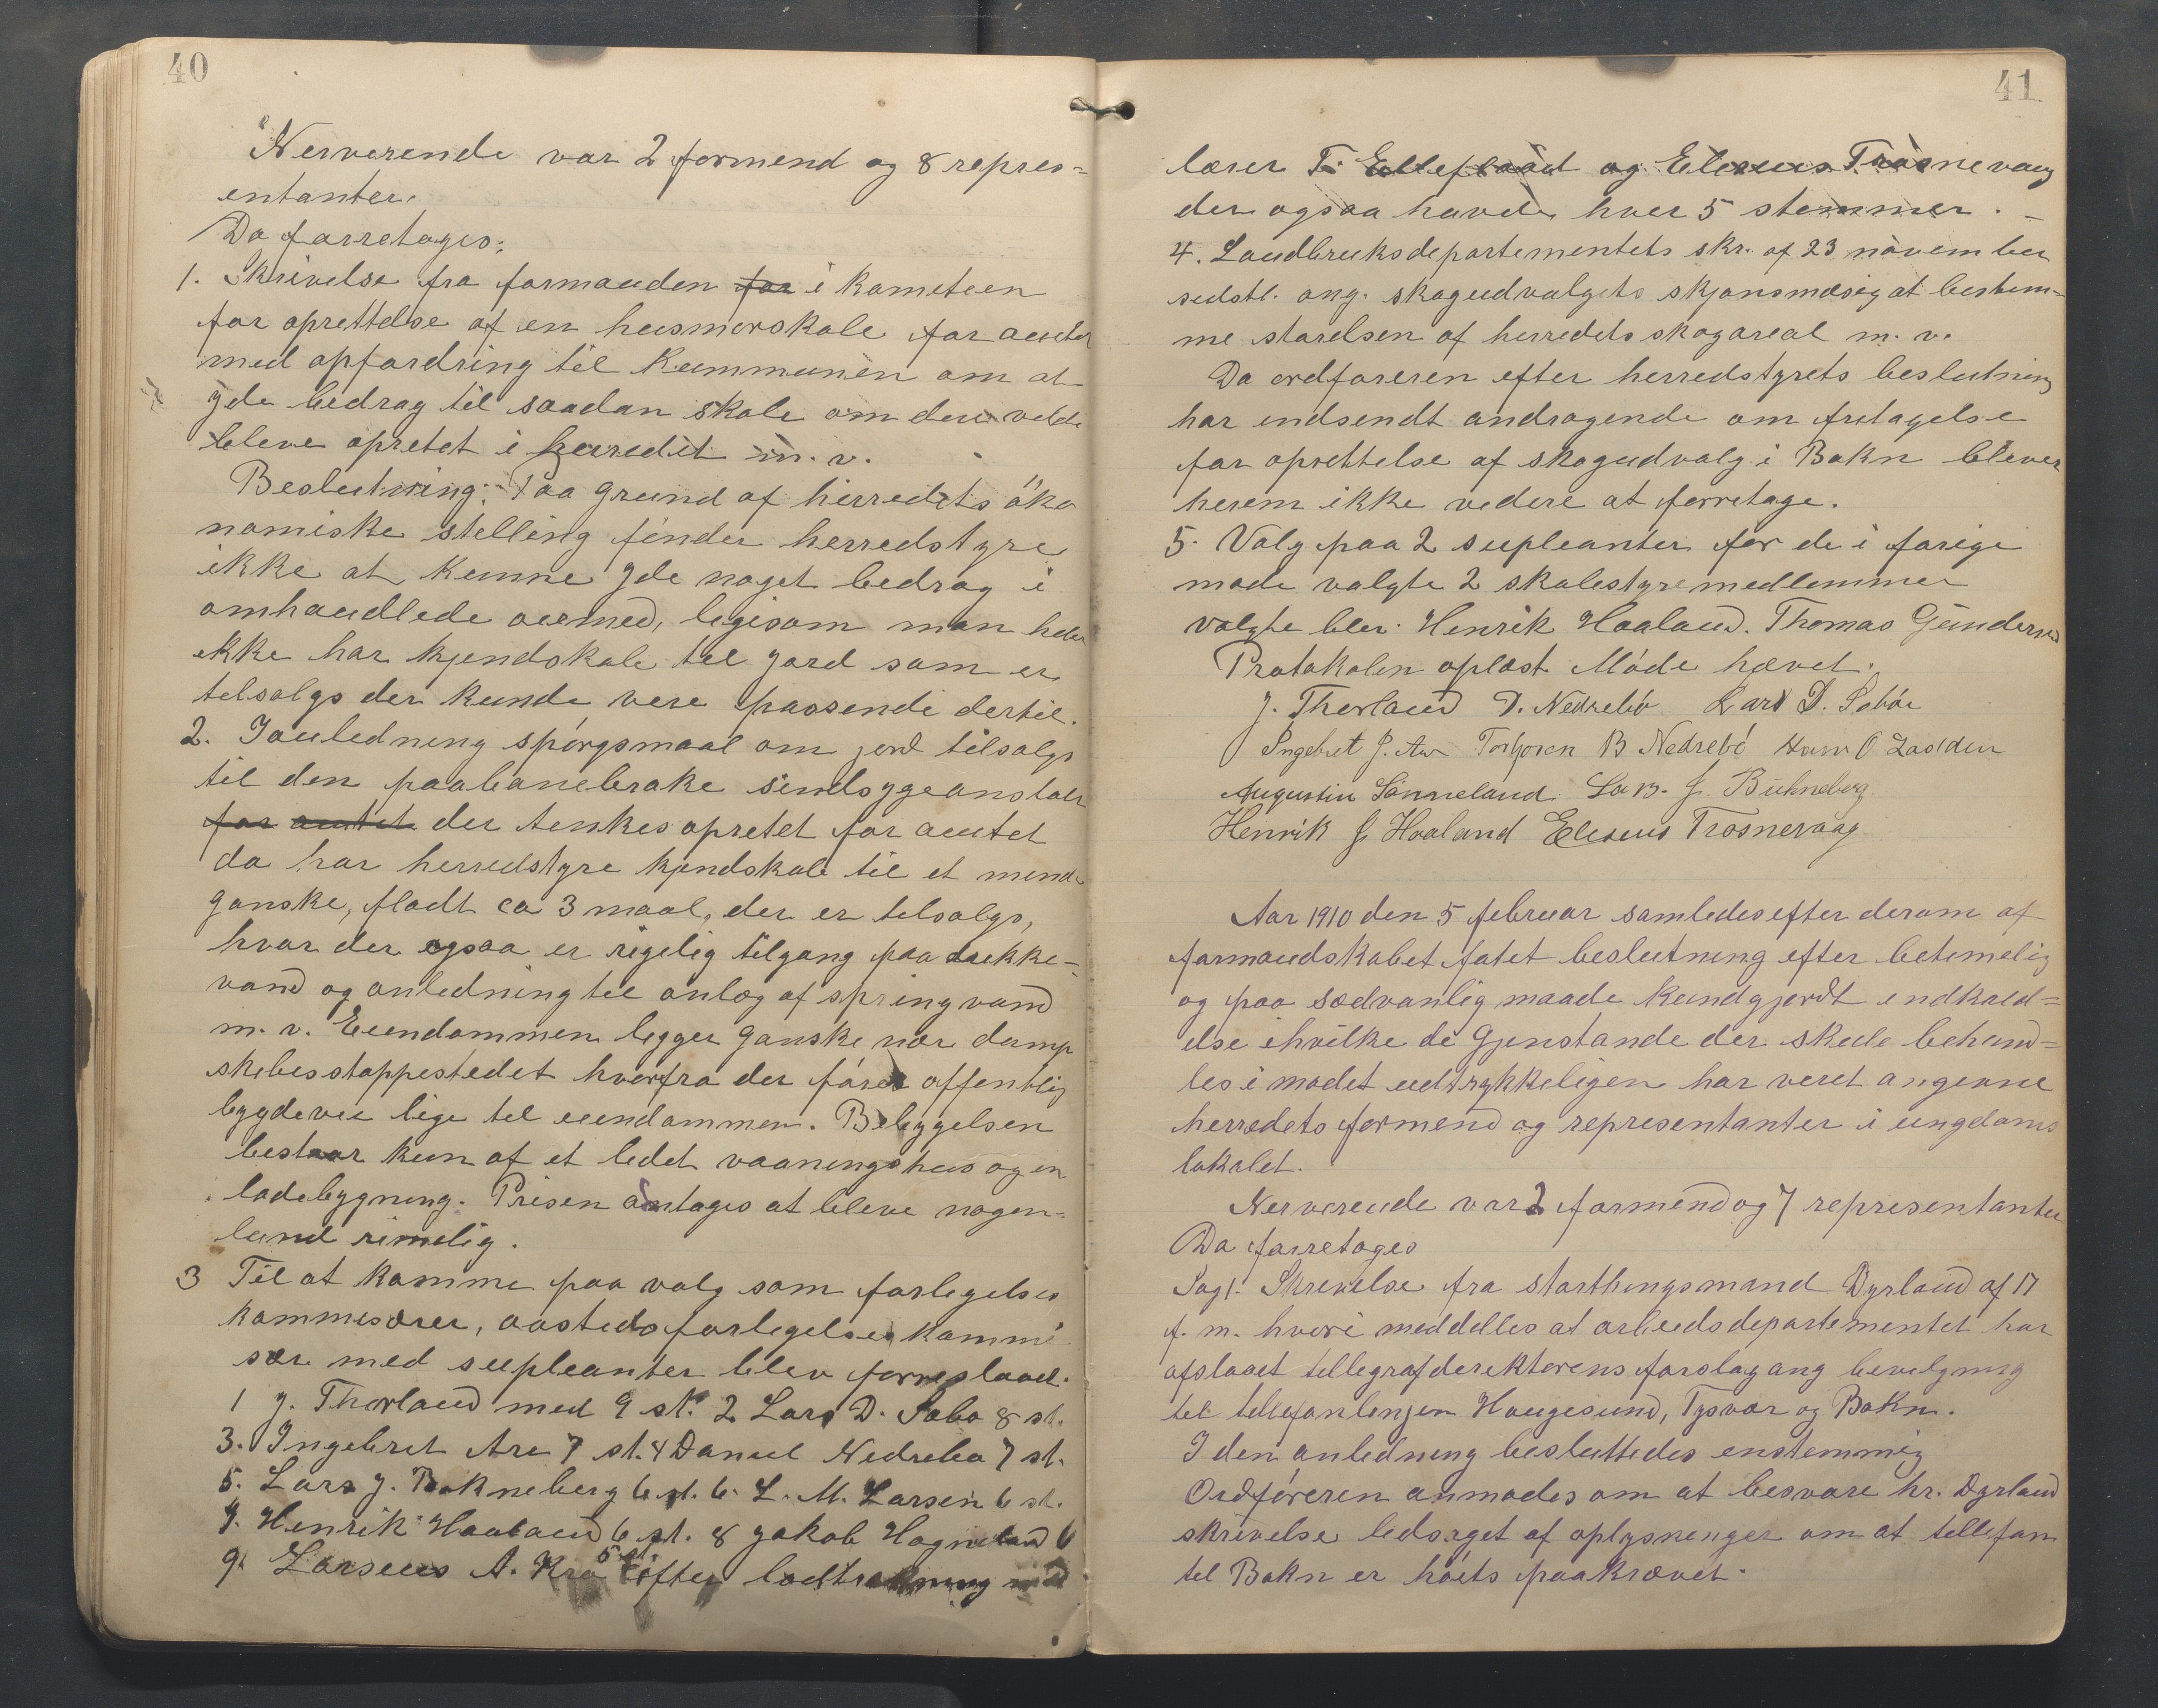 40
Nerverende var 2 formend og 8 repres=
entanter.
Da forretoges:
1. Skrivelse fra formanden for i kometeen
for oprettelse af en husmorskole for amtet
med opfordring til kommunen om at
yde bedrag til saadan skole om den vilde
bleve opretet i herredet m. v.
Beslutning: Paa grund af herredets öko
nomiske stelling finder herredstyre
ikke at kunne yde noget bedrag i
omhandlede öiemed, legisom man heler
ekke har kjendskab til jord som er
telsalgs der kunde vere passende dertil.
2. Ianledning spörgsmaal om jord tilsalgs
til den paabanebrake sindsygeanstalt
for amtet der tenkes opretet for amtet
da har herredstyre kjendskab til et mend
ganske, fladt ca 3 maal, der er telsalgs,
hvor der ogsaa er rigelig tilgang paa drekke-
vand og anledning tel anlæg af springvand
m. v. Eiendommen legger ganske nær damp
skibesstoppestedet hvorfra der förer offentlig
bygdevei lige tel eiendammen. Bebyggelsen
bestaar kun af et ledet vaaningshus og en
ladebygning. Prisen antages at bleve nogen-
lund rimelig.
3 Til at komme paa valg som forlegelses
kommesærer, aastedsforlegelses kommi
sær med supleanter blev forreslaaet.
1 J. Thorland med 9 st. 2 Lars D. Sabø 8 st.
3. Ingebret Are 7 st. 4 Daniel Nedrebø 7 st.
5. Lars J. Bokneberg 6 st. 6. L. M. Larsen 6 st.
7. Henrik Haaland 6 st. 8 Jakob Hognaland 6
9. Larseus A. Krø 5 st. Efter lodtrækning med
41
lærer T. Ellefsaad og Eleseus Trosnevaag
der ogsaa havde hver 5 stemmer. -
4. Landbruksdepartementets skr. af 23 november
sedstl. ang. skogudvalgets skjønsmæsig at bestem=
me starelsen af herredets skogareal m. v.
Da ordføreren efter herredstyrets beslutning
har endsendt andragende om fretagelse
for oprettelse af skogudvalg i Bokn blever
herem ikke vedere at forretage.
5. Valg paa 2 supleanter for de i forige
møde valgte 2 skolestyremedlemmer
valgte blev. Henrik Haaland. Thomas Gundersen
Protokolen oplæst. Møde hævet.
J. Thorland D. Nedrebö Lars D. Sabö
Ingebret J. Are Torbjørn B Nedrebö Hans O Lodden
Augustin Sønneland Lars. J. Bukneberg
Henrik J Haaland Eleseus Trosnevaag
Aar 1910 den 5 februar samledes efter derom af
formandskabet fatet beslutning efter betemelig
og paa sædvanlig maade kundgjordt indkald=
else ihvilke de gjenstande der skude behand=
les i mødet udtrykkeligen har veret angevne
herredets formend og representanter i ungdoms
lokalet.
Nerverende var 2 formend og 7 representanter
Da forretoges
Sag 1. Skrevelse fra storthingsmand Dyrland af 17
f. m. hvori meddelles at arbeidsdepartementet har
afslaaet tellegrafderektørens forslag ang bevelgning
tel tellefonlenjen Haugesund, Tysvær og Bokn.
I den anledning besluttedes enstemmig
Ordföreren anmodes om at besvare hr. Dyrland
skrivelse ledsaget af oplysnenger om at tellefon
tel Bokn er höits paakrævet.